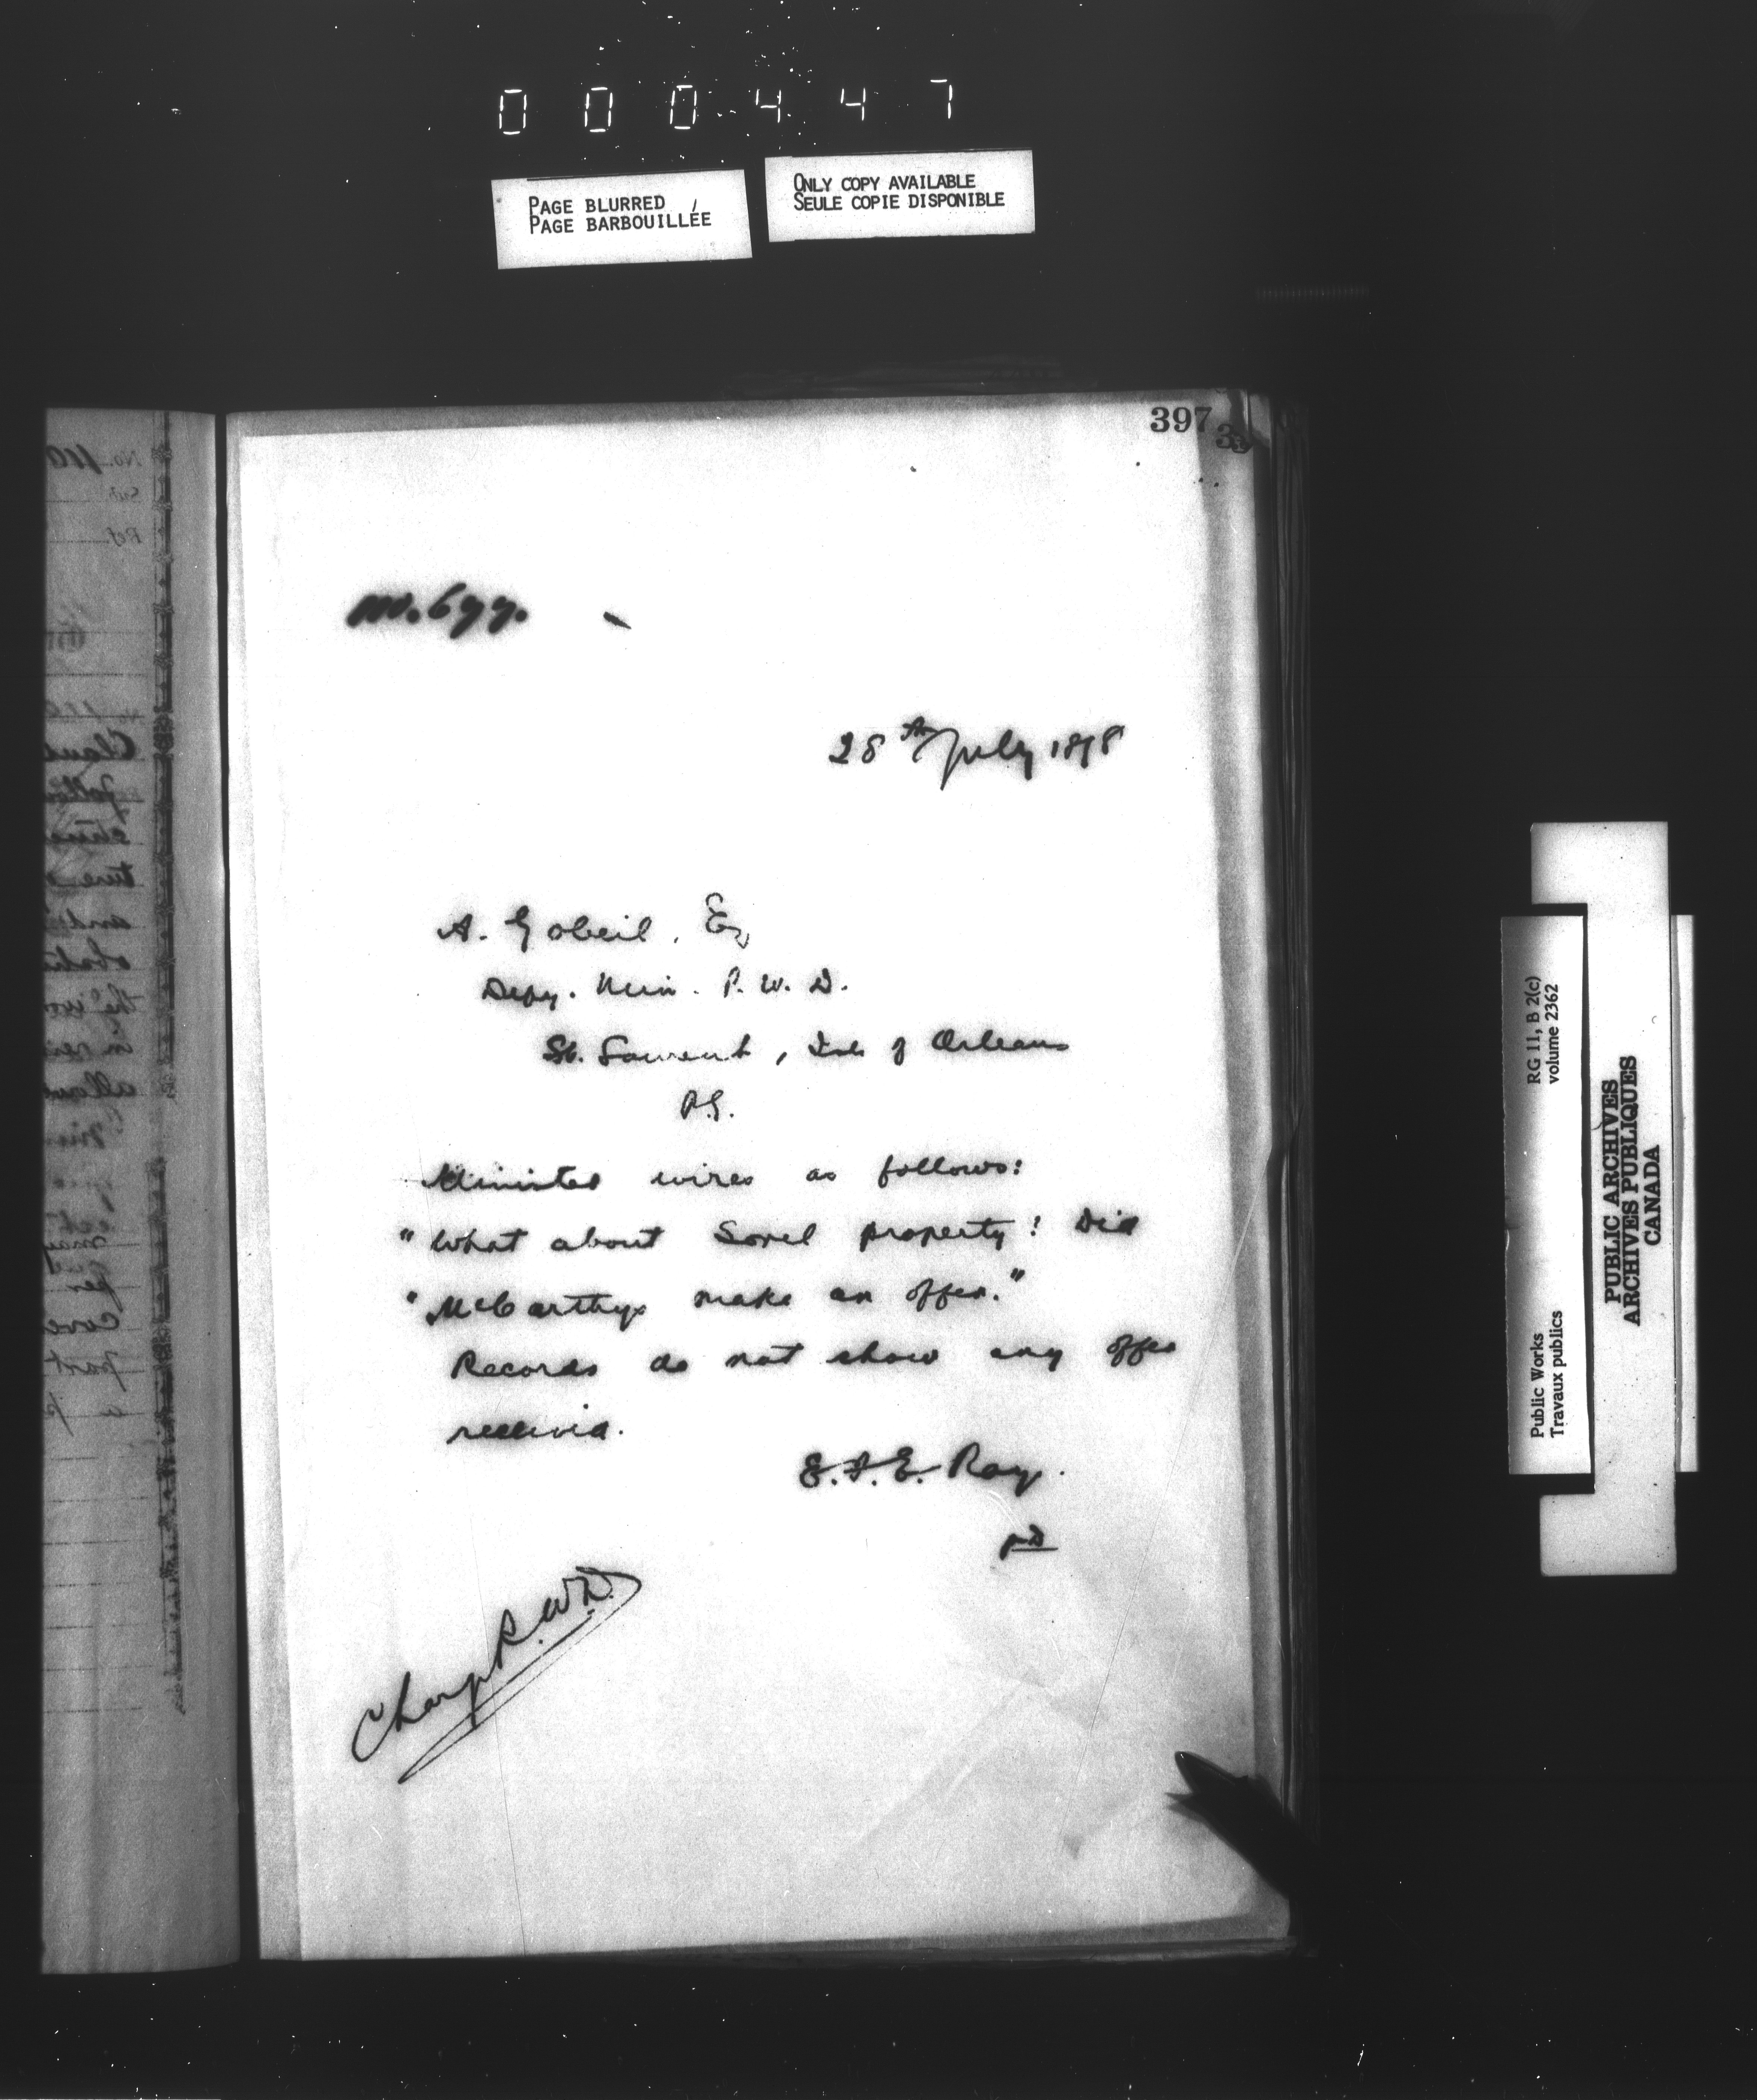 0 0 0 4 4 7
PAGE BLURRED
PAGE BARBOUILLÉE
ONLY COPY AVAILABLE
SEULE COPIE DISPONIBLE
397
No.
Ref.
28th July 1898
A. Gobeil, Esq
Depy. Min. P. W. D.
St. Laurent, Isle of Orleans
P.Q.
Minister wires as follows:
"What about Sorel property! Did
"McCarthys make an offer."
Records do not show any offer
received.
E. F. E. Roy.
Charge P. W. D.
RG 11, B 2(c)
volume 2362
Public Works
Travaux publics
PUBLIC ARCHIVES
ARCHIVES PUBLIQUES
CANADA